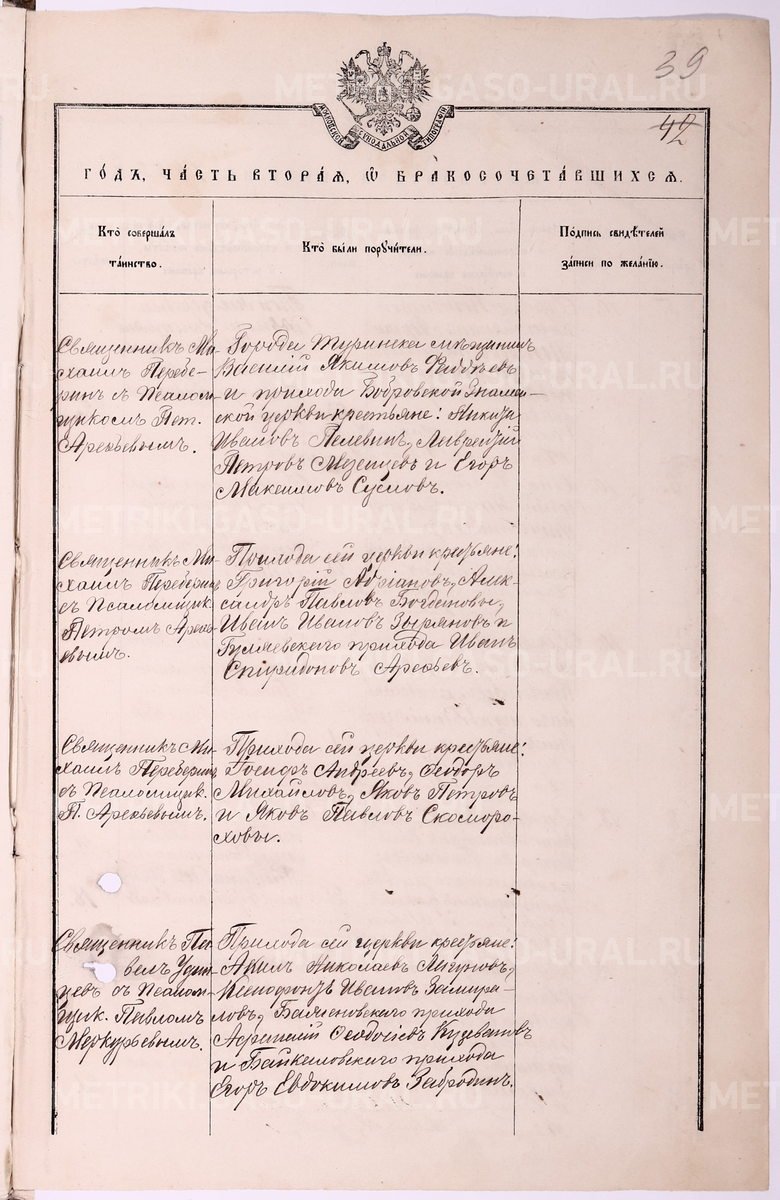 39
42
МОСКОВСКОЙ СѴНОДАЛЬНОЙ ТИПОГРАФІИ
ГО́ДЪ, ЧА́СТЬ ВТОРА́Я, Ѡ҆ БРАКОСОЧЕТА́ВШИХСѦ.
Кто̀ соверша́лъ
та́инство.
Кто̀ бы́ли порꙋчи́тели.
По́дпись свидѣ́телей
за́писи по жела́нїю.
Священникъ Ми-
хаилъ Перебе-
ринъ съ Псалом-
щикомъ Пет.
Арефьевымъ.
Города Туринска мѣщанинъ
Василій Якимовъ
и прихода Бобровской Знамен-
ской церкви крестьяне:
Ивановъ Пелевинъ, Лаврентій
Петровъ Мезенцевъ и Егоръ
Максимовъ Сусловъ.
Священникъ Ми-
хаилъ Переберин
съ Псаломщик.
Петромъ Арефь-
евымъ.
Прихода сей церкви крестьяне:
Григорій Адріановъ, Алек-
сандръ Павловъ Богдановы,
Иванъ Ивановъ Зыряновъ и
Гуляевскаго прихода Иванъ
Спиридоновъ Арефьевъ.
Священникъ Ми-
хаилъ Переберин
съ Псаломщик.
П. Арефьевымъ.
Прихода сей церкви крестьяне:
Іосифъ Андреевъ, Ѳеодоръ
Михайловъ, Яковъ Петровъ
и Яковъ Павловъ Скоморо-
ховы.
Священникъ Па-
велъ Удин-
цевъ съ Псалом-
щик. Павломъ
Меркурьевымъ.
Прихода сей церкви крестьяне:
Акимъ Николаевъ Лагуновъ,
Ксенофонтъ Ивановъ Замира-
ловъ, прихода
Ѳеодосіевъ Кузевановъ
и Байкаловскаго прихода
Егоръ Евдокимовъ Забродинъ.
METRIKI.GASO-URAL.RU